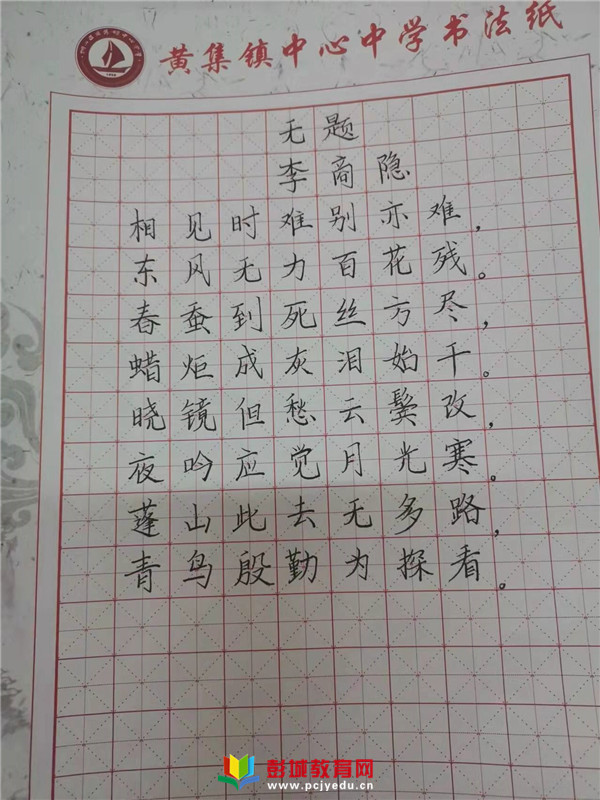 黄集镇中心中学书法纸
无题
李商隐
相见时难别亦难，
东风无力百花残。
春蚕到死丝方尽，
蜡炬成灰泪始干。
晓镜但愁云鬓改，
夜吟应觉月光寒。
蓬山此去无多路，
青鸟殷勤为探看。
彭城教育网
www.pcjyedu.cn